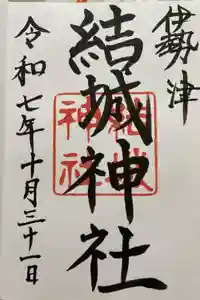 伊勢津
結城神社
結城
神社
令和七年十月三十一日